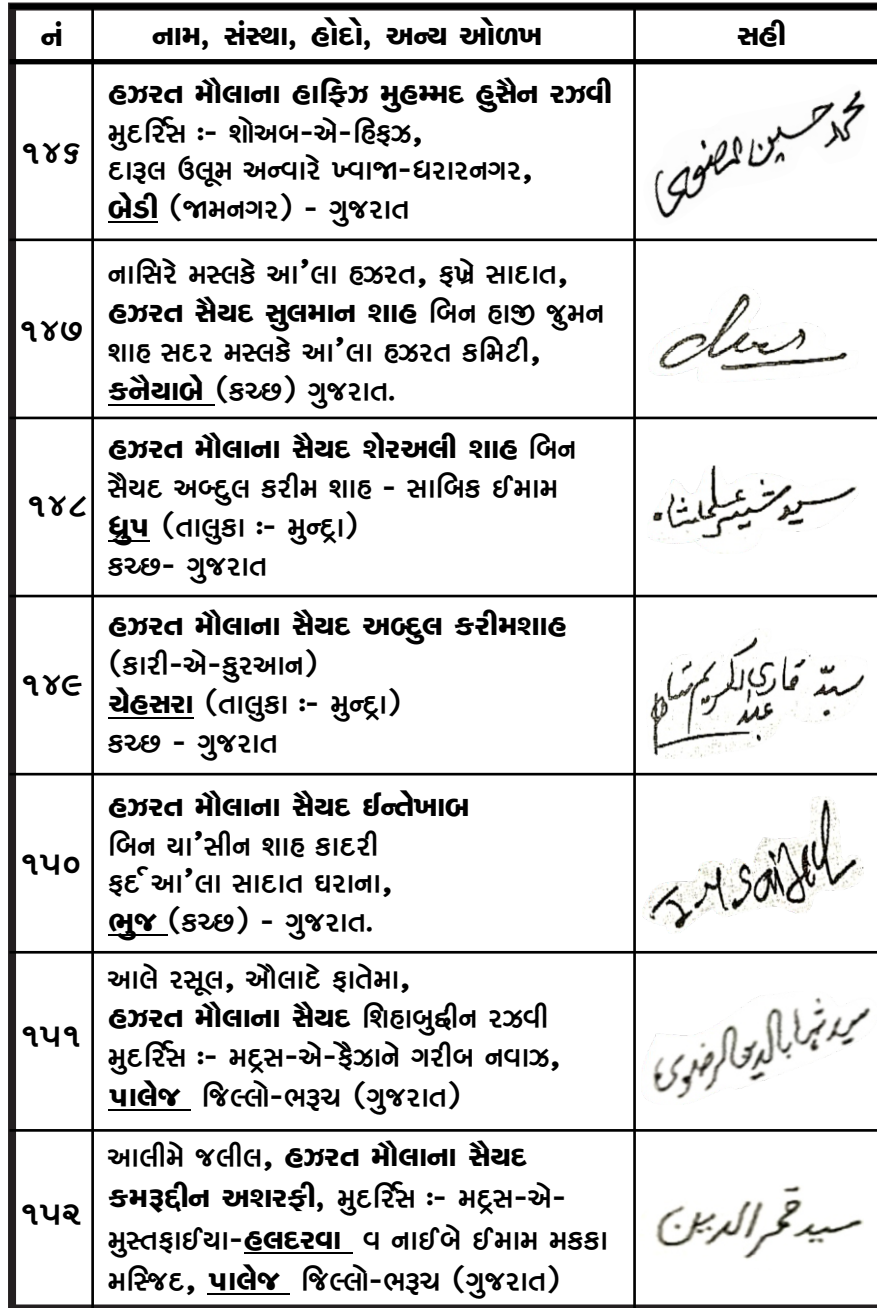 નં નામ, સંસ્થા, હોદો, અન્ય ઓળખ સહી
૧૪૬
હઝરત મૌલાના હાફિઝ મુહમ્મદ હુસૈન રઝવી
મુદર્રિસ :- શોઅબ-એ-હિફઝ,
દારૂલ ઉલૂમ અન્વારે ખ્વાજા-ધરારનગર,
બેડી (જામનગર) - ગુજરાત
محمد حسین الرضوی
૧૪૭
નાસિરે મસ્લકે આ’લા હઝરત, ફખ્રે સાદાત,
હઝરત સૈયદ સુલમાન શાહ બિન હાજી જુમન
શાહ સદર મસ્લકે આ’લા હઝરત કમિટી,
કનૈયાબે (કચ્છ) ગુજરાત.
૧૪૮
હઝરત મૌલાના સૈયદ શેરઅલી શાહ બિન
સૈયદ અબ્દુલ કરીમ શાહ - સાબિક ઈમામ
ધ્રુપ (તાલુકા :- મુન્દ્રા)
કચ્છ- ગુજરાત
سید شیر علیشاہ
૧૪૯
હઝરત મૌલાના સૈયદ અબ્દુલ કરીમશાહ
(કારી-એ-કુરઆન)
ચેહસરા (તાલુકા :- મુન્દ્રા)
કચ્છ - ગુજરાત
سیّد قاری عبد الکریم شاہ
૧૫૦
હઝરત મૌલાના સૈયદ ઈન્તેખાબ
બિન યા’સીન શાહ કાદરી
ફર્દ આ’લા સાદાત ઘરાના,
ભુજ (કચ્છ) - ગુજરાત.
૧૫૧
આલે રસૂલ, ઔલાદે ફાતેમા,
હઝરત મૌલાના સૈયદ શિહાબુદ્દીન રઝવી
મુદર્રિસ :- મદ્રસ-એ-ફૈઝાને ગરીબ નવાઝ,
પાલેજ જિલ્લો-ભરૂચ (ગુજરાત)
سید شہاب الدین الرضوی
૧૫૨
આલીમે જલીલ, હઝરત મૌલાના સૈયદ
કમરૂદ્દીન અશરફી, મુદર્રિસ :- મદ્રસ-એ-
મુસ્તફાઈયા-હલદરવા વ નાઈબે ઈમામ મકકા
મસ્જિદ, પાલેજ જિલ્લો-ભરૂચ (ગુજરાત)
سید قمر الدین